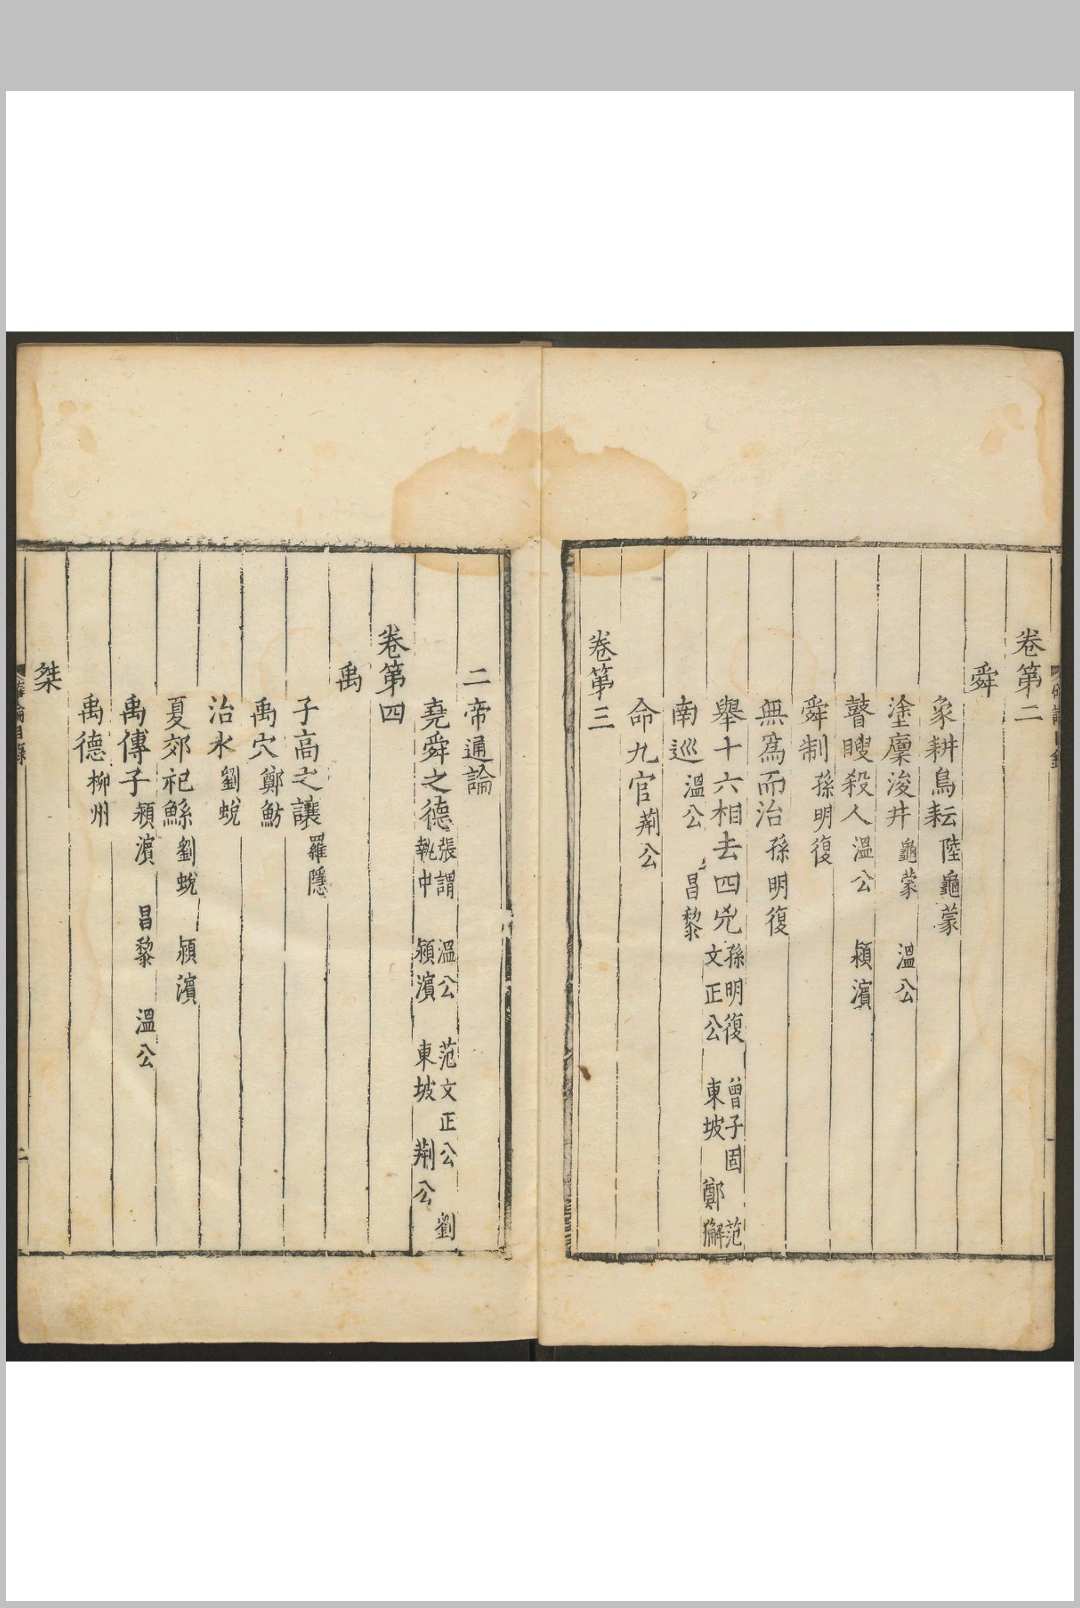 卷第二
舜
象耕鳥耘 陸龜蒙
塗廩浚井 龜蒙 溫公
瞽瞍殺人 溫公 潁濱
舜制 孫明復
無爲而治 孫明復
舉十六相去四兇 孫明復 曾子固 范
文正公 東坡 鄭獬
南巡 溫公 昌黎
命九官 荊公
卷第三
二帝通論
堯舜之德 張謂 溫公 范文正公 劉
執中 潁濱 東坡 荊公
卷第四
禹
子高之讓 羅隱
禹穴 鄭魴
治水 劉蛻
夏郊祀鯀 劉蛻 潁濱
禹傳子 潁濱 昌黎 溫公
禹德 柳州
桀